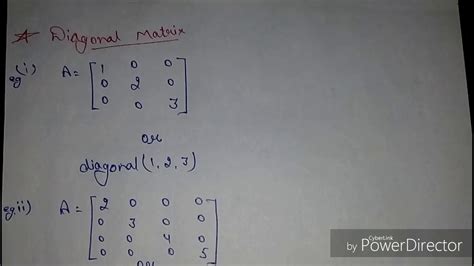 ☆ Diagonal Matrix
eg (i) A = [ 1 0 0
0 2 0
0 0 3 ]
or
diagonal (1, 2, 3)
eg ii) A = [ 2 0 0 0
0 3 0 0
0 0 4 0
0 0 0 5 ]
or
CyberLink
by PowerDirector